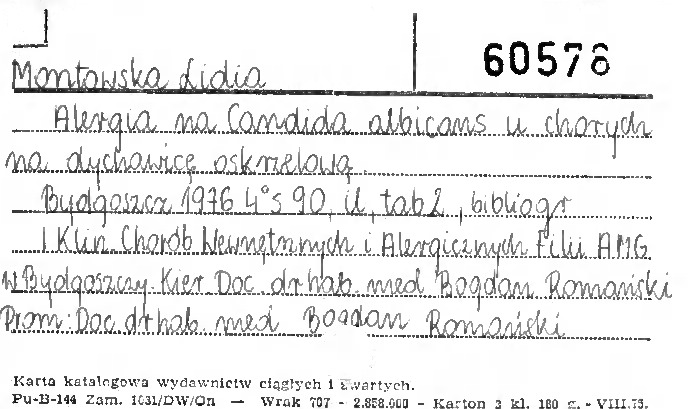 60578
Montowska Lidia
Alergia na Candida albicans u chorych
na dychawicę oskrzelową.
Bydgoszcz 1976 4° s 90, il, tab 2, bibliogr
I Klin. Chorób Wewnętrznych i Alergicznych Filii AMG
w Bydgoszczy. Kier Doc. dr hab. med Bogdan Romański
Prom: Doc. dr hab. med Bogdan Romański
Karta katalogowa wydawnictw ciągłych i zwartych.
Pu-B-144 Zam. 1031/DW/On — Wrak 707 - 2.858.000 - Karton 3 kl. 180 g. - VIII.75.